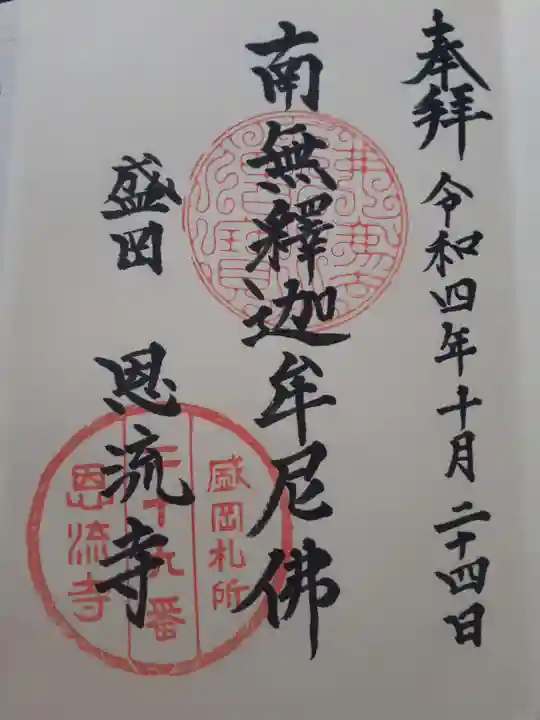 奉拝 令和四年十月二十四日
南無釋迦牟尼佛
盛岡 恩流寺
盛岡札所
二十九番
恩流寺